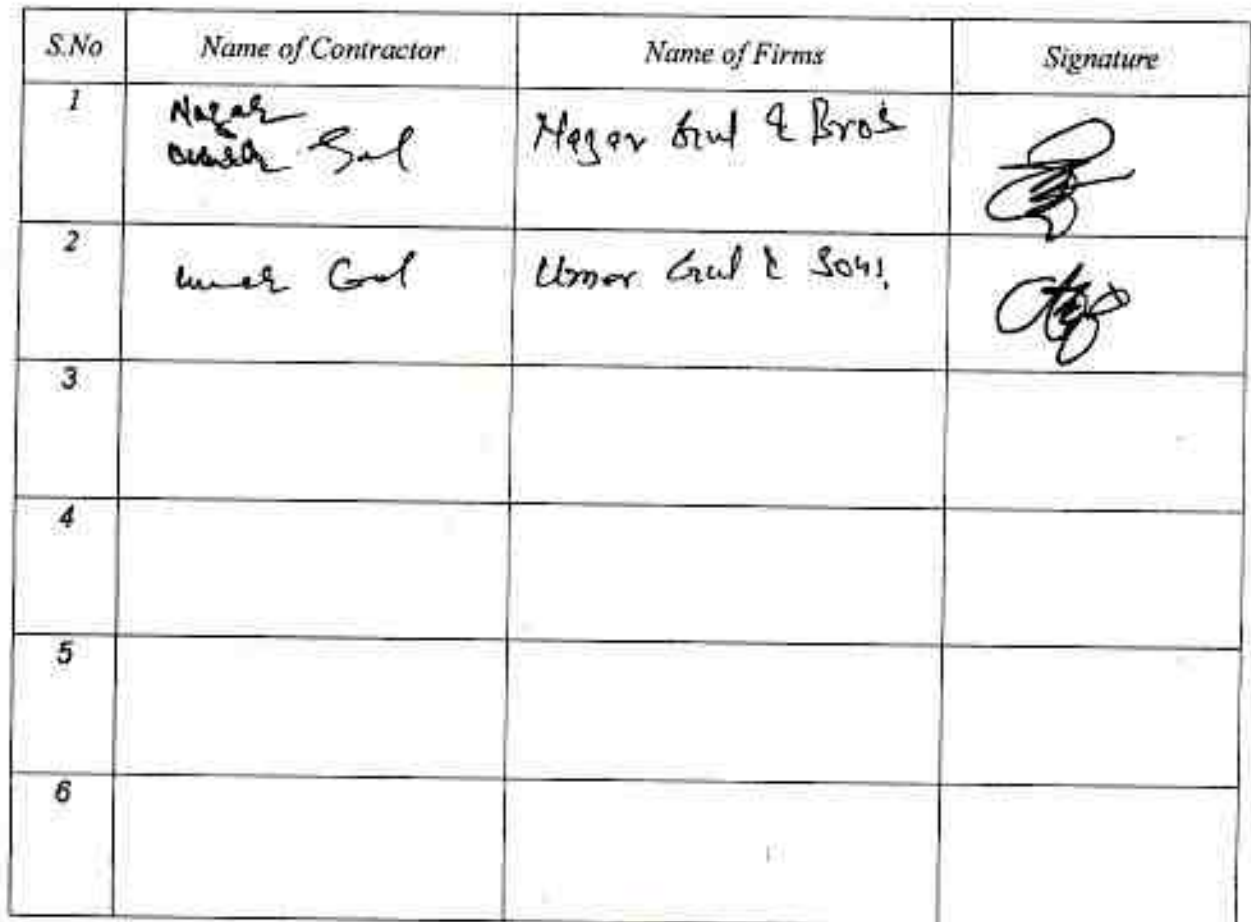 S.No Name of Contractor Name of Firms Signature
1 Nazar Gul Nazar Gul & Bros
2 Umar Gul Umar Gul & Sons
3
4
5
6